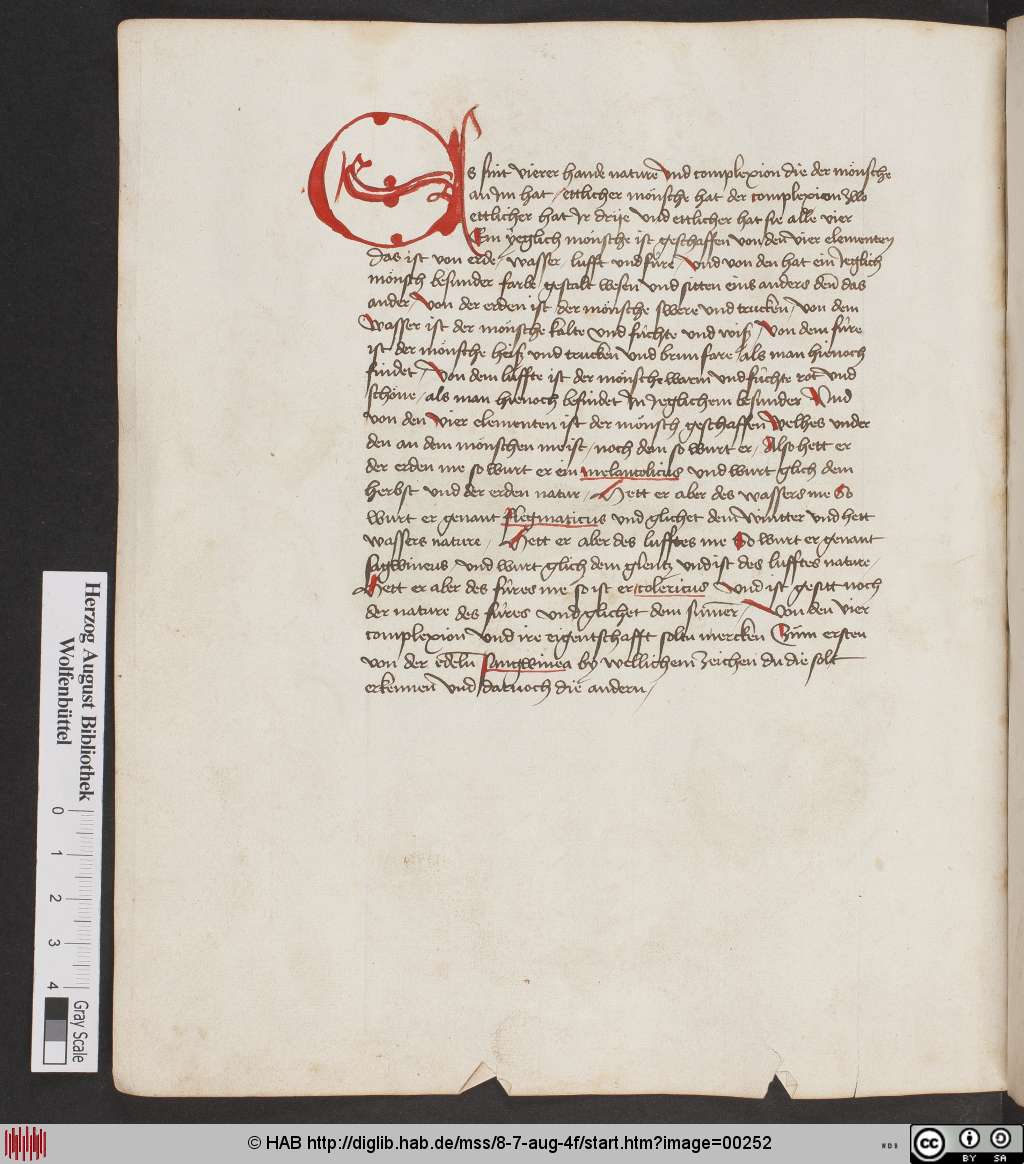 Es sint vierer hande nature vnd complexion die der mönsche
an Im hat / ettlicher mönsche hat der complexion zwo
ettlicher hat Ir drÿe vnd ettlicher hat sie alle vier
Ein ÿeglich mönsche ist geschaffen von den vier elementen
das ist von erde / wasser / lufft vnd füre / vnd von den hat ein Jeglich
mönsch besunder farbe gestalt wesen vnd sitten eins anders denn das
ander / von der erden ist der mönsche swere vnd trucken / von dem
wasser ist der mönsche kalte vnd füchte vnd wiß / von dem füre
ist der mönsche heiß vnd trucken vnd brun fare / als man hienoch
findet / von dem luffte ist der mönsche warm vnd füchte rot vnd
schöne / als man hienoch befindet In Jeglichem besunder Vnd
von den vier elementen ist der mönsch geschaffen welhes vnder
den an dem mönschen meist / noch dem so wurt er / Also hett er
der erden me so wurt er ein melancolicus vnd wurt glich dem
herbst vnd der erden natur / Hett er aber des wassers me So
wurt er genant flegmaticus vnd glichet dem wintter vnd hett
wassers nature / Hett er aber des lufftes me So wurt er genant
sagwineus vnd wurt glich dem glentz vnd ist des lufftes nature /
Hett er aber des füres me so ist er colericus vnd ist gesitt noch
der nature des füres vnd glichet dem sumer / Von den vier
complexion vnd ire eigentschafft soltu mercken Züm ersten
von der edeln sangwinea by wellichem zeichen du die solt
erkennen vnd darnoch die andern /
Herzog August Bibliothek
Wolfenbüttel
0 1 2 3 4
Gray Scale
© HAB http://diglib.hab.de/mss/8-7-aug-4f/start.htm?image=00252
WDB
cc BY SA